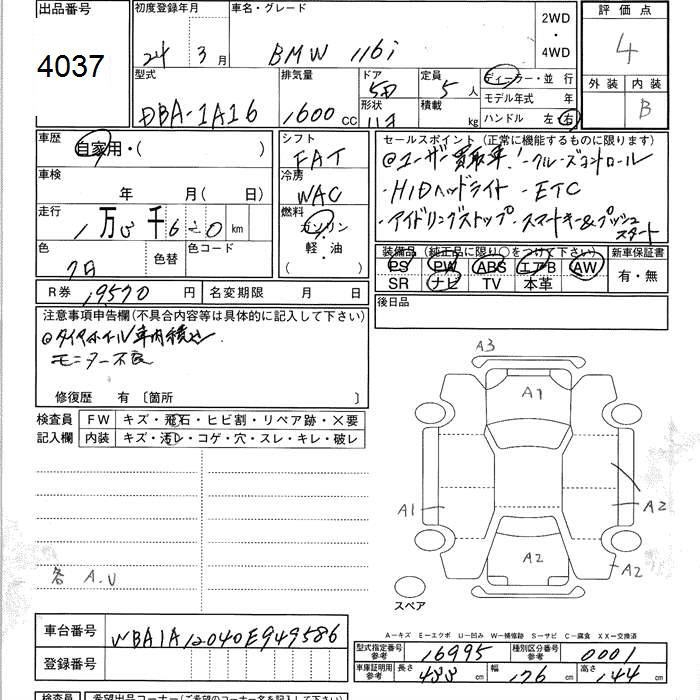 出品番号 初度登録年月 車名・グレード 2WD ・ 4WD 評価点
4037 24年3月 BMW 116i 4
型式 排気量 ドア 形状 定員 積載 ディーラー・並行 外装 内装
DBA-1A16 1600cc 5D 5人 kg モデル年式 年 B
ハンドル 左・右
車歴 自家用・( ) シフト FAT セールスポイント (正常に機能するものに限ります)
◎ユーザー買取車! ・クルーズコントロール
車検 年 月( 日) 冷房 WAC ・HIDヘッドライト ・ETC
走行 1万 千620km 燃料 ガソリン・軽・油 ( ) ・アイドリングストップ ・スマートキー&プッシュスタート
色 色替 色コード
装備品 (純正品に限り○をつけて下さい) 新車保証書
PS PW ABS エアB AW 有・無
SR ナビ TV 本革
R券 19570円 名変期限 月 日 後日品
注意事項申告欄(不具合内容等は具体的に記入して下さい)
◎タイヤホイール車内積込
モニター不良
修復歴 有 〔箇所 〕
検査員記入欄 FW キズ・飛石・ヒビ割・リペア跡・X要
内装 キズ・汚レ・コゲ・穴・スレ・キレ・破レ
A3
A1
A1
A2
A2
A2
各 A.U
スペア
車台番号 WBA1A12040E949586
登録番号
A-キズ E-エクボ U-凹み W-補修跡 S-サビ C-腐食 XX-交換済
型式指定番号 参考 16995 種別区分番号 参考 0001
車庫証明用 参考 長さ 433 幅 176 高さ 144
検査員 希望出品コーナー(ご希望のコーナー名を記入して下さい)